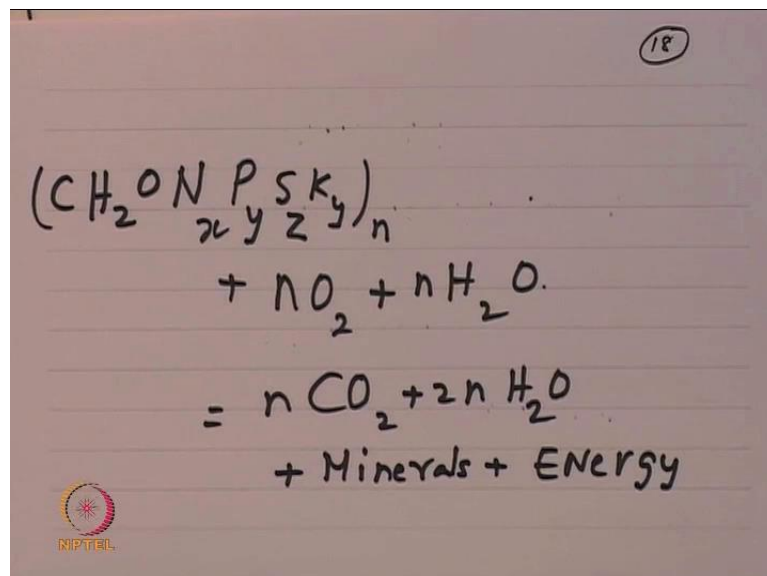 18
(CH₂ONₓP_yS_zK_y)ₙ
+ nO₂ + nH₂O.
= nCO₂ + 2nH₂O
+ Minerals + ENergy
NPTEL